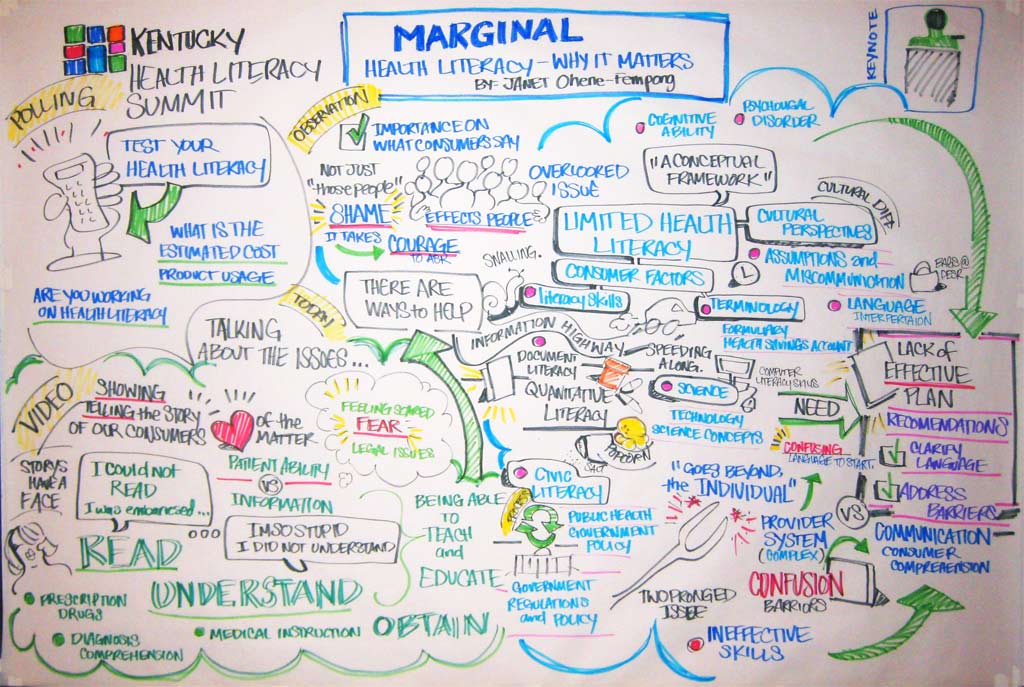 KENTUCKY
HEALTH LITERACY
SUMMIT
MARGINAL
HEALTH LITERACY - WHY IT MATTERS
BY- JANET Ohene-Fempong
KEYNOTE
POLLING
TEST YOUR
HEALTH LITERACY
WHAT IS THE
ESTIMATED COST
PRODUCT USAGE
ARE YOU WORKING
ON HEALTH LITERACY
OBSERVATION
IMPORTANCE ON
WHAT CONSUMERS SAY
NOT JUST
"those people"
SHAME
IT TAKES
COURAGE
TO ASK
EFFECTS PEOPLE
OVERLOOKED
ISSUE
COGNITIVE
ABILITY
PSYCHOUGAL
DISORDER
"A CONCEPTUAL
FRAMEWORK"
LIMITED HEALTH
LITERACY
CULTURAL DIFF.
CULTURAL
PERSPECTIVES
ASSUMPTIONS and
MISCOMMUNICATION
BAGS@
DESK
LANGUAGE
INTERPERTAION
CONSUMER FACTORS
SNAILING.
literacy skills
TERMINOLOGY
FORMULIARY
HEALTH SAVINGS ACCOUNT
TODAY
TALKING
ABOUT THE ISSUES...
THERE ARE
WAYS to HELP
INFORMATION HIGHWAY
SPEEDING
ALONG.
DOCUMENT
LITERACY
QUANATATIVE
LITERACY
SCIENCE
COMPUTER
LITERACY SKILLS
TECHNOLOGY
SCIENCE CONCEPTS
POPCORN
SALT
NEED
CONFUSING
LANGUAGE TO START.
LACK of
EFFECTIVE
PLAN
RECOMENDATIONS
CLARIFY
LANGUAGE
ADDRESS
BARRIERS
VIDEO
SHOWING
TELLING the STORY
OF OUR CONSUMERS
of the
MATTER
STORYS
HAVE A
FACE
PATIENT ABILITY
VS
INFORMATION
FEELING SCARED
FEAR
LEGAL ISSUES
I COULD NOT
READ
I was embarresed...
I'M SO STUPID
I DID NOT UNDERSTAND
READ
UNDERSTAND
OBTAIN
PRESCRIPTION
DRUGS
DIAGNOSIS
COMPREHENSION
MEDICAL INSTRUCTION
BEING ABLE
TO
TEACH
and
EDUCATE
CIVIC
LITERACY
PUBLIC HEALTH
GOVERNMENT
POLICY
GOVERNMENT
REGULATIONS
and POLICY
"GOES BEYOND,
the INDIVIDUAL"
TWO PRONGED
ISSUE
PROVIDER
SYSTEM
(COMPLEX)
VS
COMMUNICATION
CONSUMER
COMPREHENSION
CONFUSION
BARRIORS
INEFFECTIVE
SKILLS